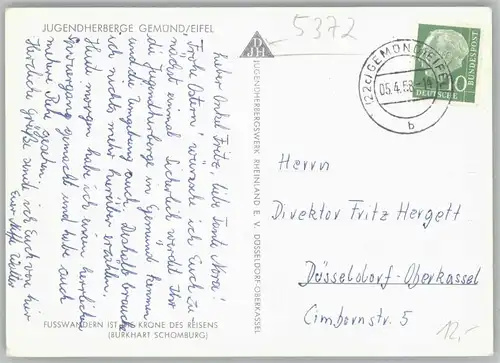 JUGENDHERBERGE GEMÜND/EIFEL
Lieber Onkel Fritz, liebe Tante Nora!
Frohe Ostern! wünsche ich Euch zu-
nächst einmal. Sicherlich werdet Ihr
die Jugendherberge in Gemünd kennen
und die Umgebung auch. Deshalb brauche
ich nichts mehr hierüber erzählen.
Heute morgen habe ich einen herrlichen
Spaziergang gemacht und habe auch
meine Rehe gesehen.
Herzliche Grüße sende ich Euch von hier
Euer Neffe Walter
FUSSWANDERN IST DIE KRONE DES REISENS
(BURKHART SCHOMBURG)
DJH
JUGENDHERBERGSWERK RHEINLAND E. V. DÜSSELDORF-OBERKASSEL
5372
(22c) GEMÜND (EIFEL)
05.4.58
b
10
DEUTSCHE
BUNDESPOST
Herrn
Direktor Fritz Hergett
Düsseldorf-Oberkassel
Cimbernstr. 5
12,-